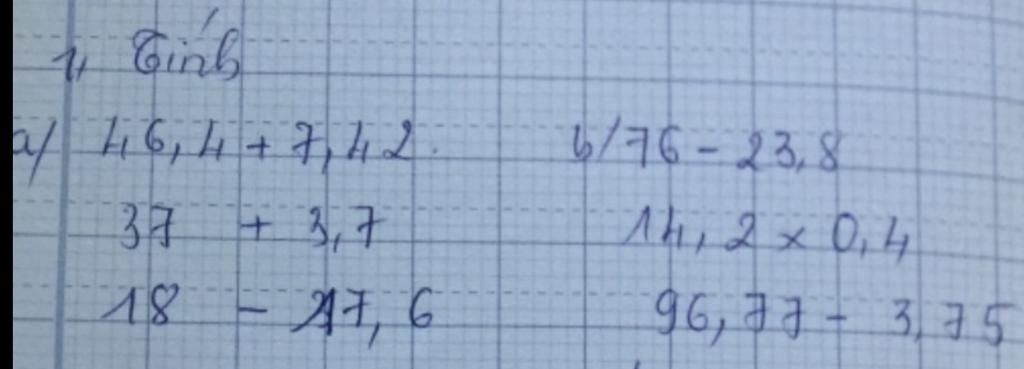 1, Tính
a/ 46,4 + 7,42. b/ 76 - 23,8
37 + 3,7 14,2 x 0,4
18 - 17,6 96,77 - 3,75